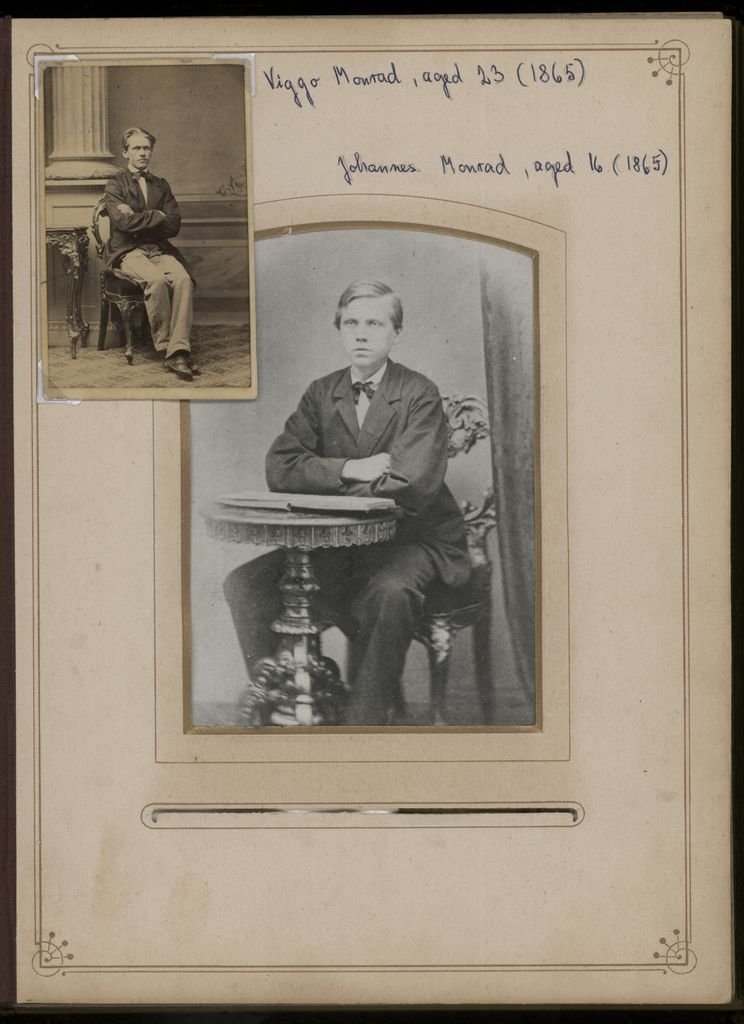 Viggo Monrad, aged 23 (1865)
Johannes Monrad, aged 16 (1865)